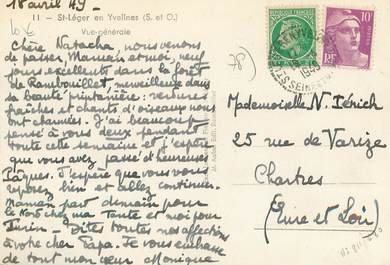 18 avril 49 -
11 - St-Léger en Yvelines (S. et O.)
Vue générale
Chère Natacha, nous venons
de passer, Maman et moi, neuf
jours excellents dans la forêt
de Rambouillet, merveilleuse dans
sa beauté printanière :
fraîches et chants d'oiseaux nous
ont charmées. J'ai beaucoup
pensé à vous deux pendant
toute cette semaine et j'espère
que vous avez passé d'heureuses
Pâques. J'espère que vous vous
reposez bien et allez continuer.
Maman part demain pour
le Nord chez ma Tante et moi pour
Turin - Dites toutes nos affections
à votre cher Papa. Je vous embrasse
de tout mon cœur Monique
(78)
1949
SEINE
10F
RF
Mademoiselle N. Iénich
25 rue de Varize
Chartres
(Eure et Loir)